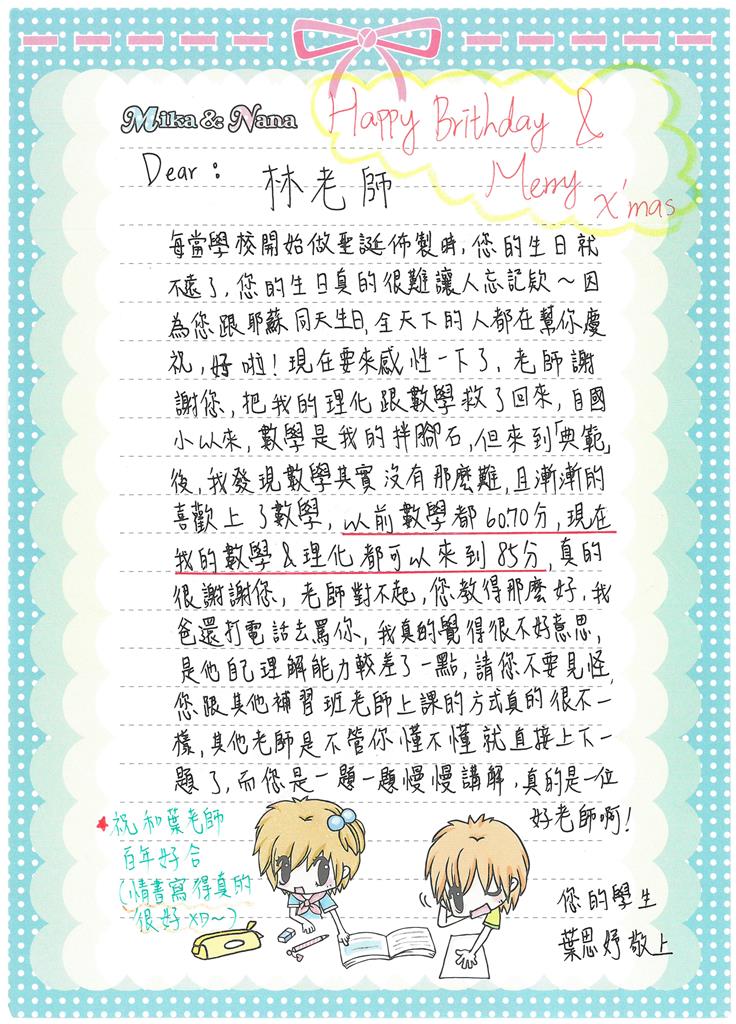 Mika & Nana
Happy Brithday &
Merry X'mas
Dear：
林老師
每當學校開始做聖誕佈製時，您的生日就
不遠了，您的生日真的很難讓人忘記欸～因
為您跟耶蘇同天生日，全天下的人都在幫你慶
祝，好啦！現在要來感性一下了，老師謝
謝您，把我的理化跟數學救了回來，自國
小以來，數學是我的拌腳石，但來到「典範」
後，我發現數學其實沒有那麼難，且漸漸的
喜歡上了數學，以前數學都60.70分，現在
我的數學&理化都可以來到85分，真的
很謝謝您，老師對不起，您教得那麼好，我
爸還打電話去罵你，我真的覺得很不好意思，
是他自己理解能力較差了一點，請您不要見怪，
您跟其他補習班老師上課的方式真的很不一
樣，其他老師是不管你懂不懂就直接上下一
題了，而您是一題一題慢慢講解，真的是一位
好老師啊！
★祝和葉老師
百年好合
(情書寫得真的
很好XD～)
您的學生
葉思妤敬上